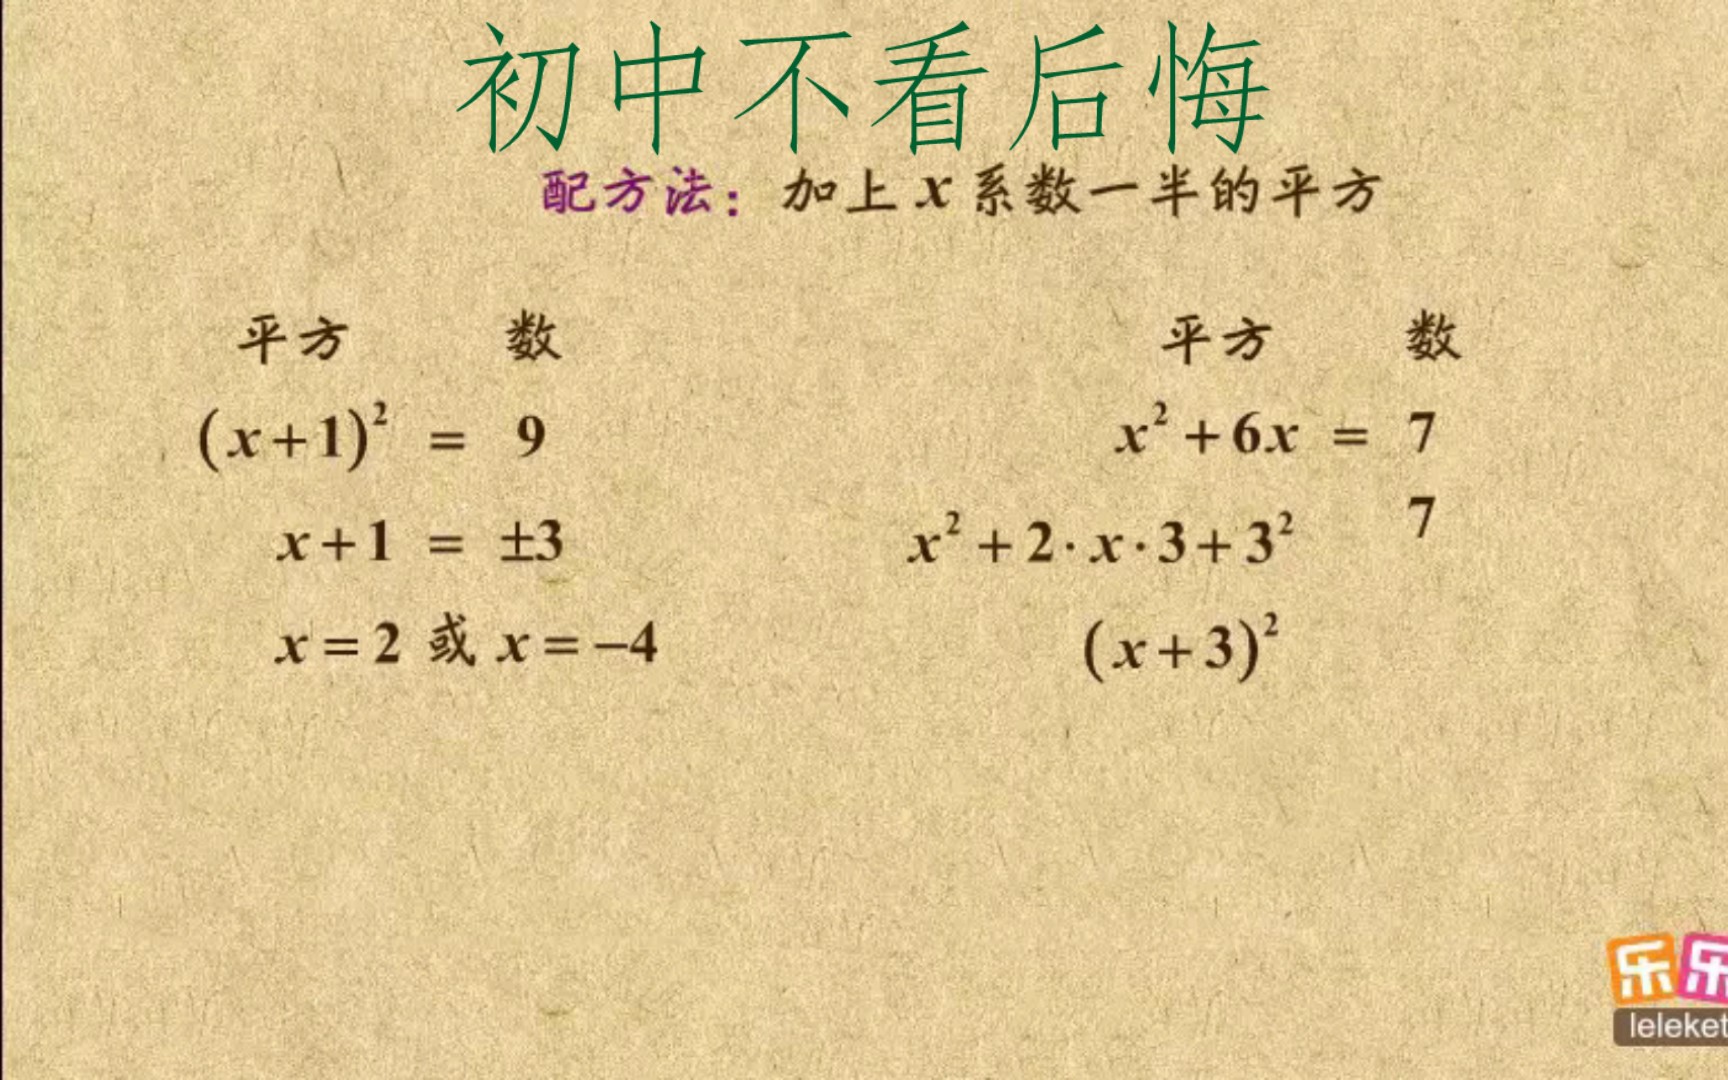 初中不看后悔
配方法：加上 x 系数一半的平方
平方 数
(x+1)² = 9
x+1 = ±3
x=2 或 x=−4
平方 数
x²+6x = 7
x²+2·x·3+3² 7
(x+3)²
乐乐
leleket